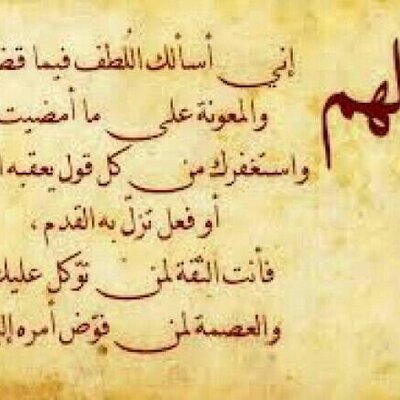 لهم
إني أسألك اللطف فيما قض
والمعونة على ما أمضيت
واستغفرك من كل قول يعقبه ا
أو فعل تزلّ به القدم ،
فأنت الثقة لمن توكل عليك
والعصمة لمن فوّض أمره إل